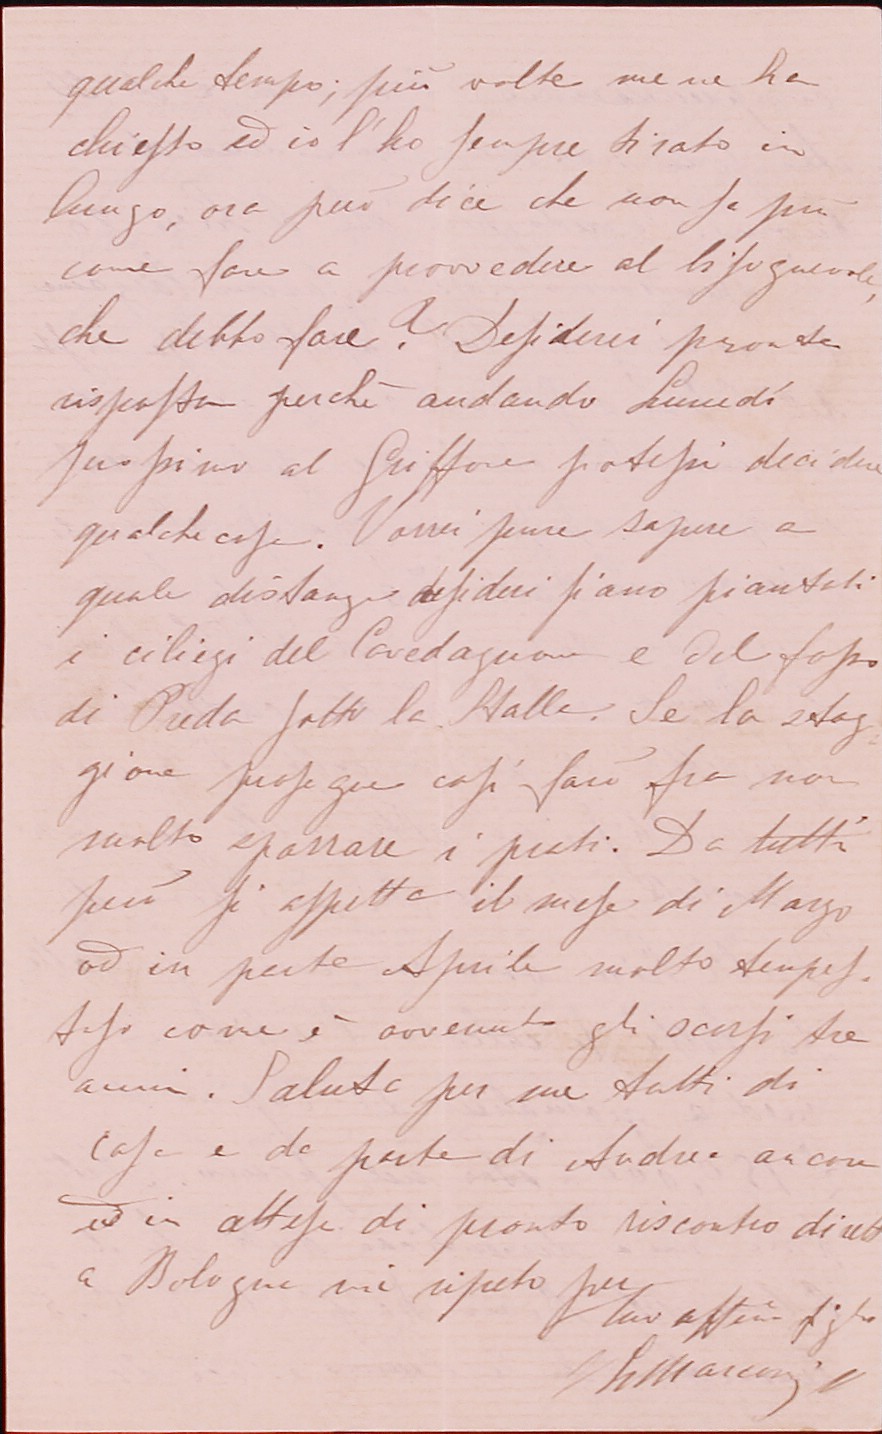 qualche tempo; più volte me ne ha
chiesto ed io l'ho sempre tirato in
lungo, ora però dice che non sa più
come fare a provvedere al bisognevole,
che debbo fare? Desiderei pronta
risposta perchè andando Lunedì
prossimo al Griffone potessi decidere
qualche cosa. Vorrei pure sapere a
quale distanza desideri siano piantati
i ciliegi del Cavedagnone e del fosso
di Preda sotto la Stalla. Se la stag-
gione prosegue così farò fra non
molto sparrare i prati. Da tutti
però si aspetta il mese di Marzo
od in parte Aprile molto tempes-
toso come è avvenuto gli scorsi tre
anni. Saluta per me tutti di
casa e da parte di Andrea ancora
ed in attesa di pronto riscontro dirett
a Bologna mi ripeto per
tuo affmo figlio
Marconi